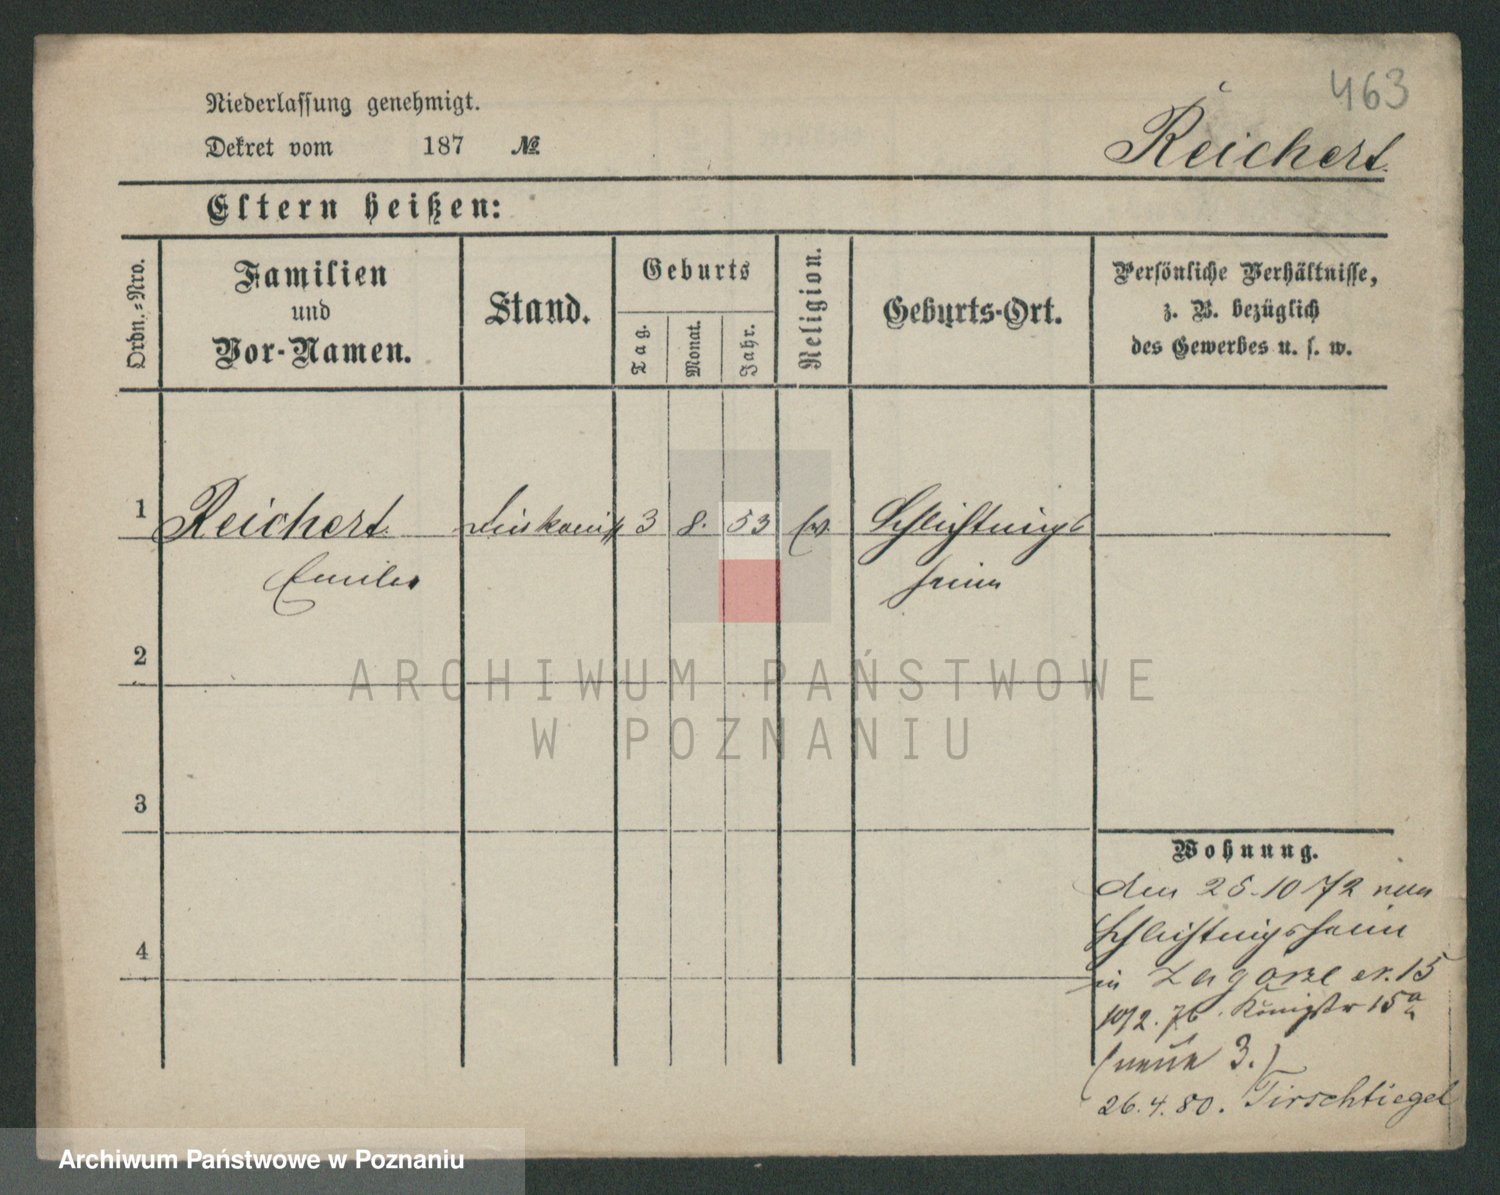 463
Niederlassung genehmigt.
Dekret vom 187 №
Reichert
Eltern heißen:
Ordn.-Nro.
Familien
und
Vor-Namen.
Stand.
Geburts
Tag.
Monat.
Jahr.
Religion.
Geburts-Ort.
Persönliche Verhältnisse,
z. B. bezüglich
des Gewerbes u. s. w.
1 Reichert Diakoniss 3 8. 53 ev. Schlichtings
Emilie heim
2
3
4
Wohnung.
den 25.10 72 von
Schlichtingsheim
in Zagorze nr. 15
10/2. 76. Königstr 15a
(neue 3.)
26.4.80. Tirschtiegel
ARCHIWUM PAŃSTWOWE
W POZNANIU
Archiwum Państwowe w Poznaniu